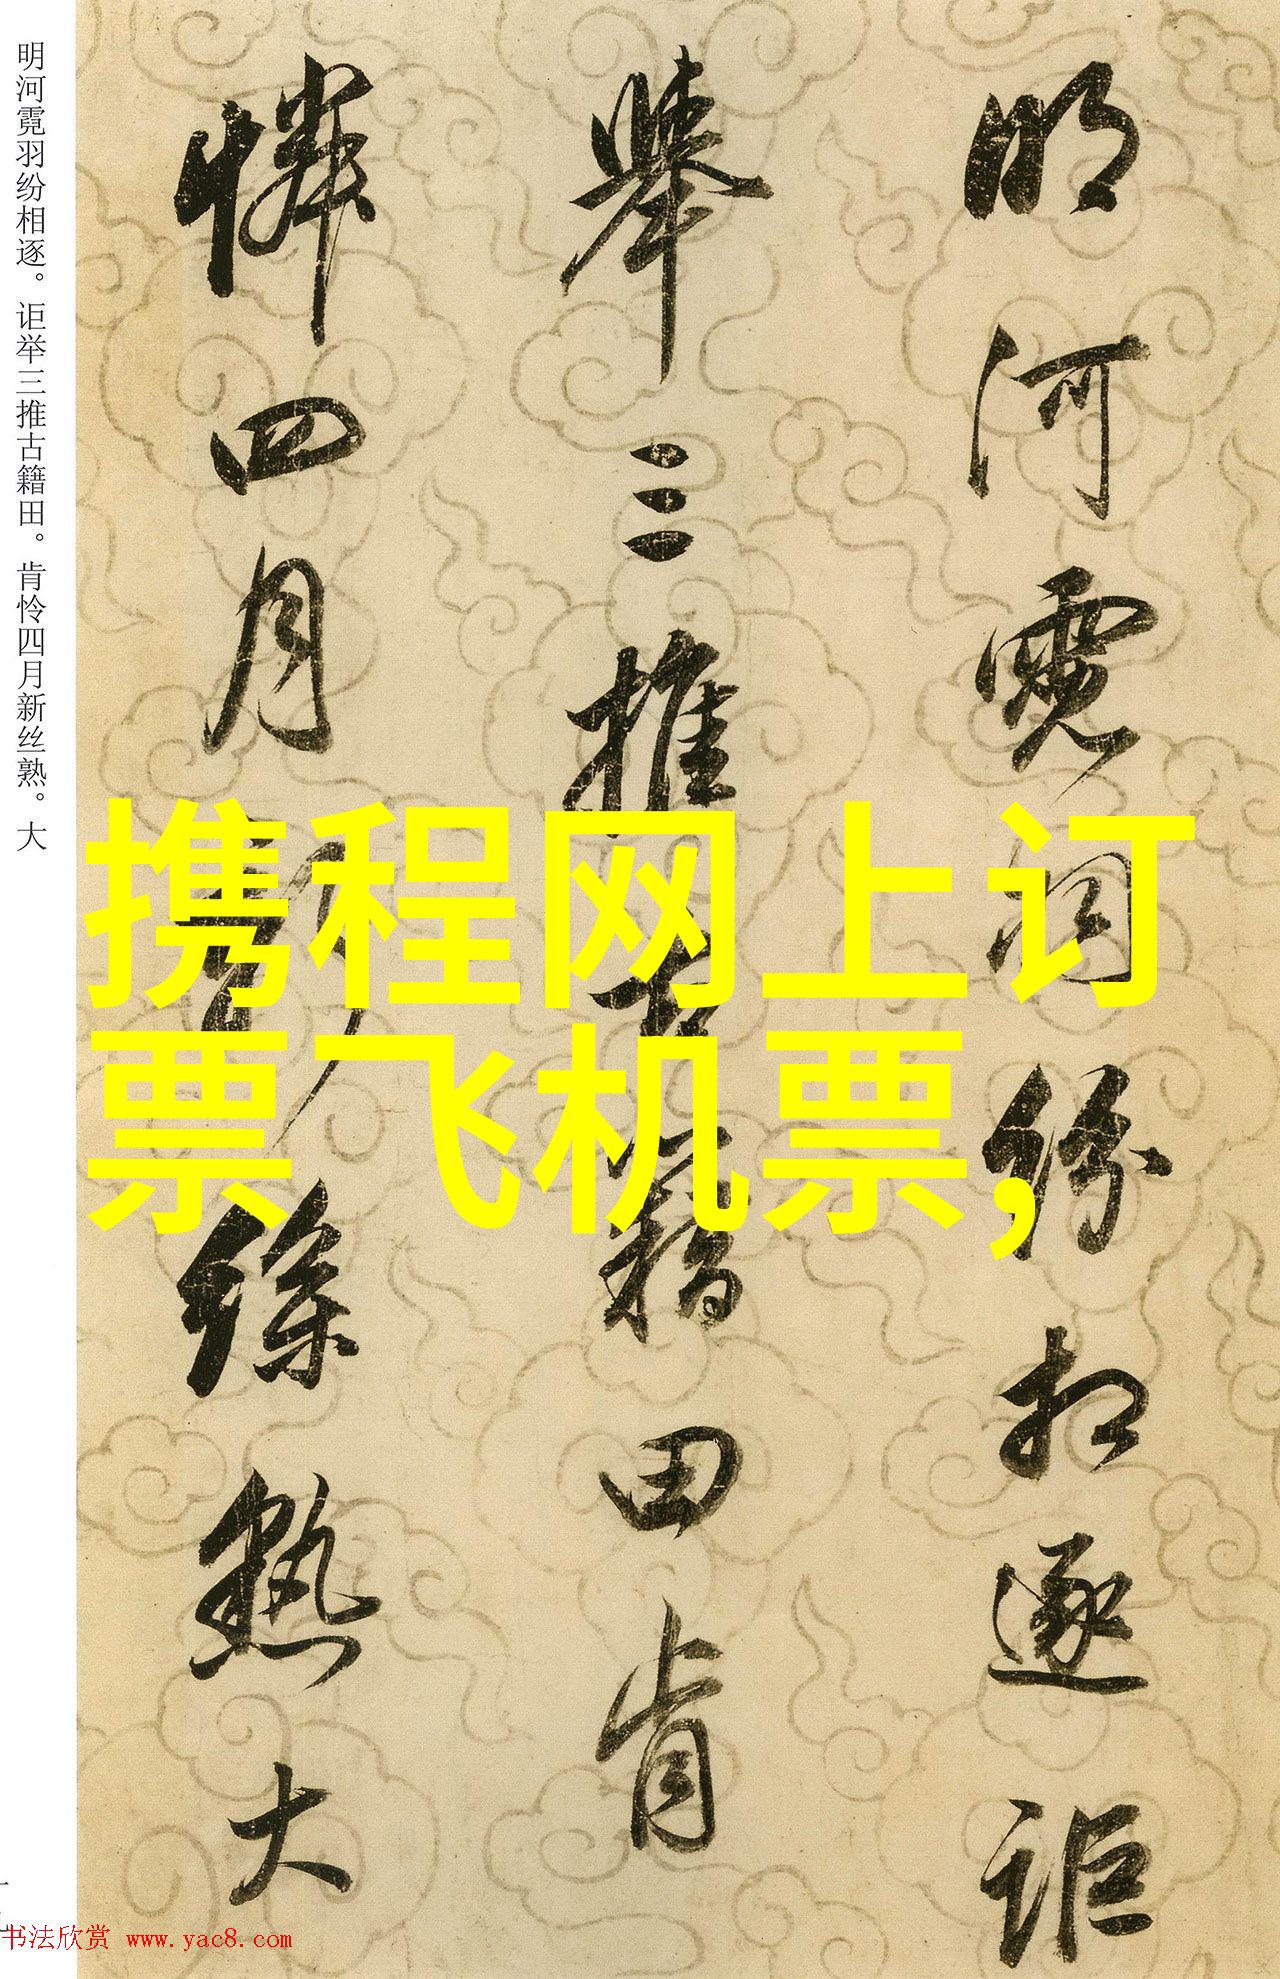 明河霓羽纷相逐。讵举三推古籍田。肯怜四月新丝熟。大
明河霓羽纷相逐讵
举三推古籍田肯
怜四月新丝熟大
携程网上订
票飞机票,
书法欣赏 www.yac8.com